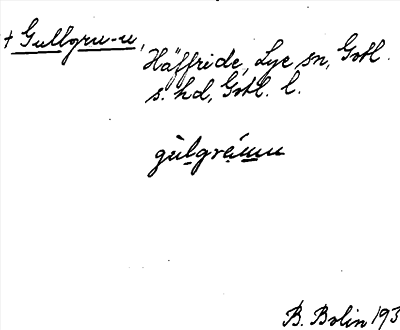 + Gullgru-u,
Häffride, Lye sn, Gotl.
s. hd, Gotl. l.
gùlgrámu
B. Bolin 193